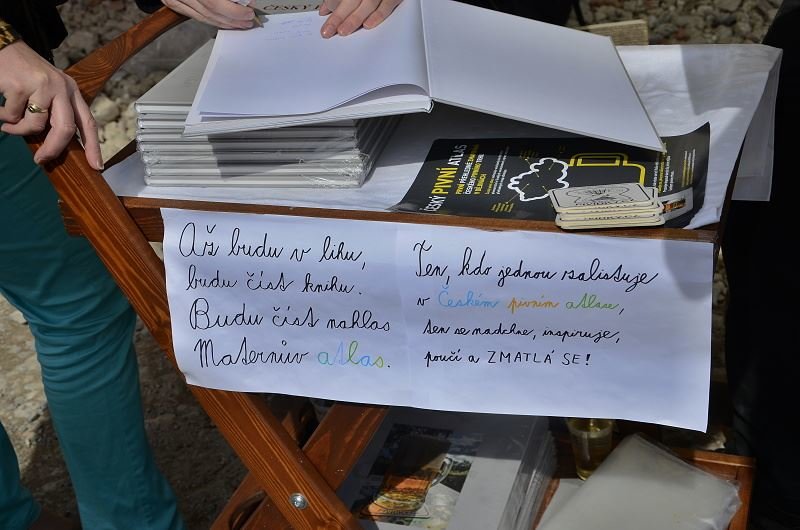 ČESKÝ PIVNÍ ATLAS
Až budu v lihu,
budu číst knihu.
Budu číst nahlas
Maternův atlas.
Ten, kdo jednou zalistuje
v Českém pivním atlase,
ten se nadchne, inspiruje,
poučí a ZMATLÁ SE!